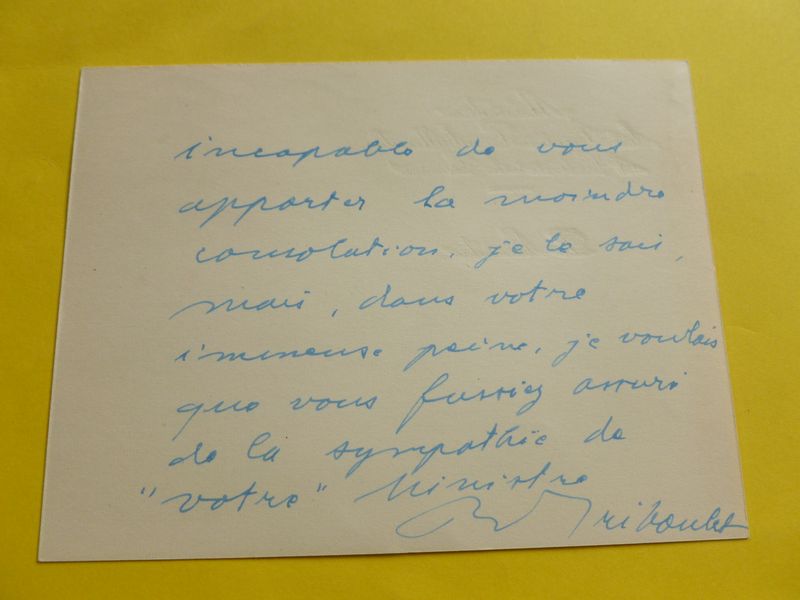 incapable de vous
apporter la moindre
consolation, je le sais,
mais, dans votre
immense peine, je voulais
que vous fussiez assuré
de la sympathie de
"votre" Ministre
Triboulet